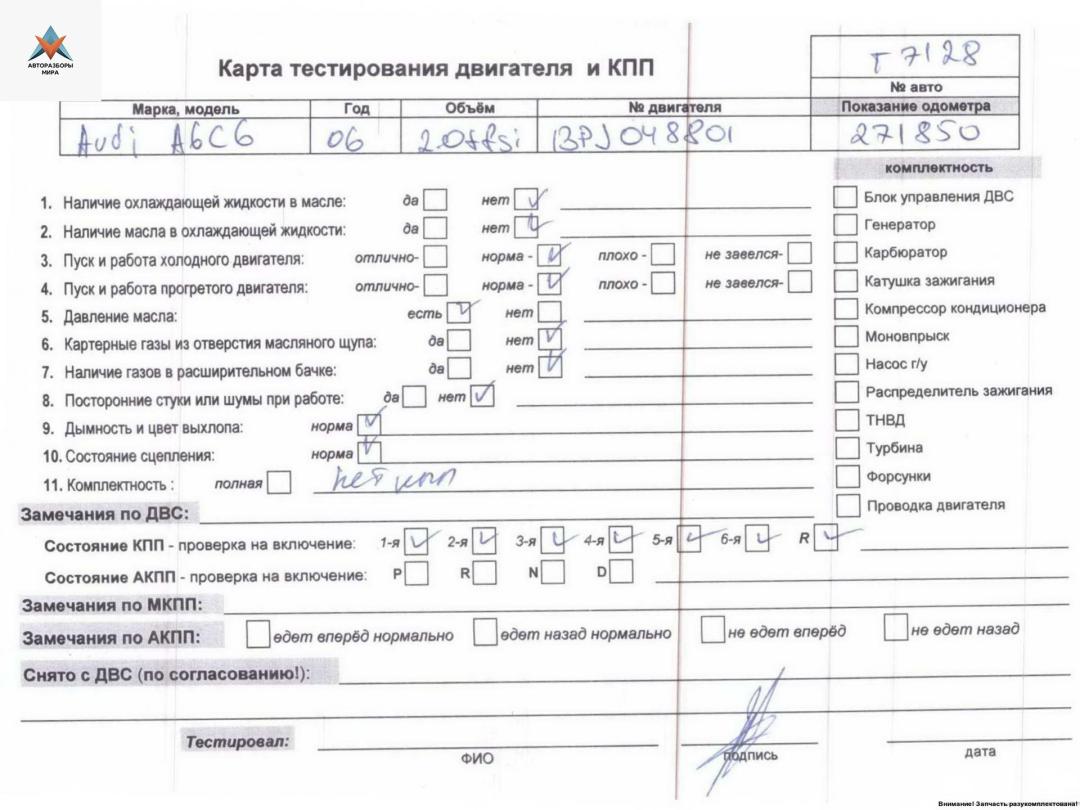 АВТОРАЗБОРЫ
МИРА
Карта тестирования двигателя и КПП
Т 7128
№ авто
Марка, модель Год Объём № двигателя Показание одометра
Audi A6C6 06 2.0tfsi BPJ048801 271850
комплектность
1. Наличие охлаждающей жидкости в масле: да нет
2. Наличие масла в охлаждающей жидкости: да нет
3. Пуск и работа холодного двигателя: отлично- норма - плохо - не завелся-
4. Пуск и работа прогретого двигателя: отлично- норма - плохо - не завелся-
5. Давление масла: есть нет
6. Картерные газы из отверстия масляного щупа: да нет
7. Наличие газов в расширительном бачке: да нет
8. Посторонние стуки или шумы при работе: да нет
9. Дымность и цвет выхлопа: норма
10. Состояние сцепления: норма
11. Комплектность : полная нет кпп
Блок управления ДВС
Генератор
Карбюратор
Катушка зажигания
Компрессор кондиционера
Моновпрыск
Насос г/у
Распределитель зажигания
ТНВД
Турбина
Форсунки
Проводка двигателя
Замечания по ДВС:
Состояние КПП - проверка на включение: 1-я 2-я 3-я 4-я 5-я 6-я R
Состояние АКПП - проверка на включение: P R N D
Замечания по МКПП:
Замечания по АКПП: едет вперёд нормально едет назад нормально не едет вперёд не едет назад
Снято с ДВС (по согласованию!):
Тестировал:
ФИО подпись дата
Внимание! Запчасть разукомплектована!